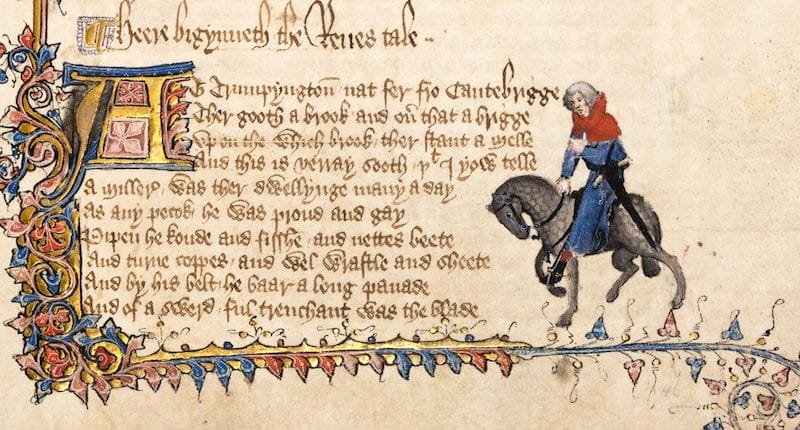 Heere bigynneth the Reues tale
At Trumpyngton nat fer fro Cantebrigge
Ther gooth a brook and ouer that a brigge
Vp on the which brook ther stant a melle
And this is verray sooth þt I yow telle
A miller was ther dwellynge many a day
As any pecok he was proud and gay
Pipen he koude and fisshe and nettes beete
And turne coppes and wel wrastle and sheete
And by his belt he baar a long panade
And of a swerd ful trenchant was the blade